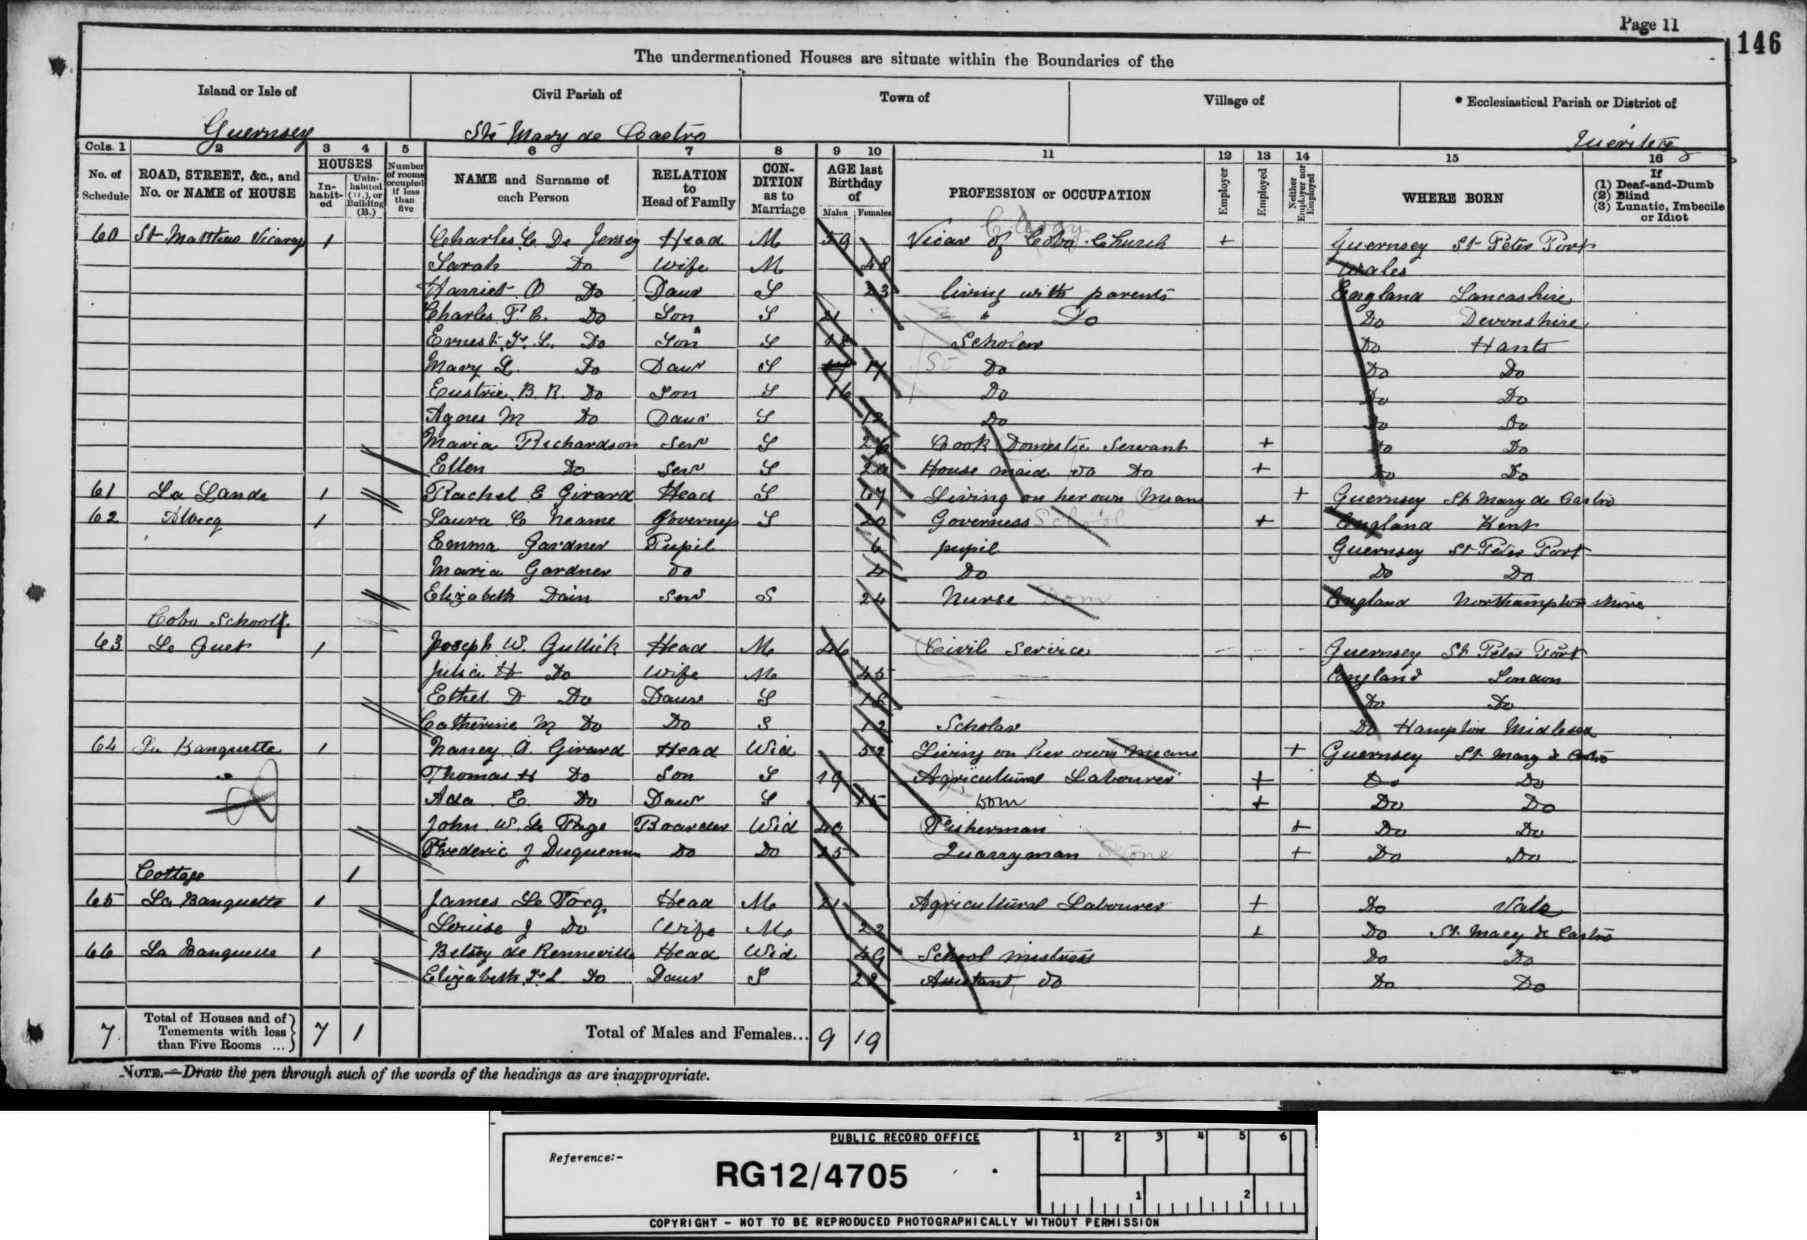 Page 11
146
The undermentioned Houses are situate within the Boundaries of the
Island or Isle of
Civil Parish of
Town of
Village of
* Ecclesiastical Parish or District of
Guernsey
Ste Mary de Castro
Cols. 1 2 3 4 5 6 7 8 9 10 11 12 13 14 15 16
No. of Schedule
ROAD, STREET, &c., and No. or NAME of HOUSE
HOUSES
In-habit-ed
Unin-habited (U.), or Building (B.)
Number of rooms occupied if less than five
NAME and Surname of each Person
RELATION to Head of Family
CON-DITION as to Marriage
AGE last Birthday of
Males Females
PROFESSION or OCCUPATION
Employer
Employed
Neither Employer nor Employed
WHERE BORN
If
(1) Deaf-and-Dumb
(2) Blind
(3) Lunatic, Imbecile or Idiot
Clergy
60 St Matthew Vicarag 1 Charles C De Jersey Head M 59 Vicar of Cobo Church + Guernsey St Peter Port
Sarah Do Wife M 48 Wales
Harriet O Do Daur S 23 living with parents England Lancashire
Charles F C. Do Son S 21 " Do Do Devonshire
Ernest F. L. Do Son S 18 Scholar Do Hants
Mary L. Do Daur S 17 Do Do Do
B R. Do Son S 16 Do Do Do
Agnes M Do Daur S 12 Do Do Do
Maria Richardson Serv S 26 Cook Domestic Servant + Do Do
Ellen Do Serv S 20 House maid do Do + Do Do
61 La Lande 1 Rachel E Girard Head S 67 Living on her own Means + Guernsey St Mary de Castro
62 Albecq 1 Laura C Neame Governess S 20 Governess School + England Kent
Emma Gardner Pupil 6 pupil Guernsey St Peter Port
Maria Gardner Do 4 Do Do Do
Elizabeth Dain Serv S 24 Nurse Dom England Northampton shire
Cobo School
63 Le Guet 1 Joseph W. Gullick Head M 46 Civil Service Guernsey St Peter Port
Julia H Do Wife M 45 England London
Ethel D Do Daur S 18 Do Do
Catherine M Do Do S 12 Scholar Do Hampton Midlesex
64 La Banquette 1 Nancy A. Girard Head Wid 52 Living on her own Means + Guernsey St Mary de Castro
Thomas H Do Son S 19 Agricultural Labourer + Do Do
Ada E. Do Daur S 15 Dom + Do Do
John W. Le Page Boarder Wid 40 Fisherman + Do Do
Frederic J Duquemin Do Do 25 Quarryman Stone + Do Do
Cottage 1
65 La Banquette 1 James Le Tocq Head M 21 Agricultural Labourer + Do Vale
Louise J Do Wife M 22 + Do St. Mary de Castro
66 La Banquette 1 Betsy de Renneville Head Wid 49 School mistress Do Do
Elizabeth F. L. Do Daur S 22 Assistant do Do Do
7 Total of Houses and of Tenements with less than Five Rooms ... 7 1 Total of Males and Females... 9 19
NOTE.—Draw the pen through such of the words of the headings as are inappropriate.
PUBLIC RECORD OFFICE
1 2 3 4 5 6
Reference:-
RG12/4705
1 2
COPYRIGHT - NOT TO BE REPRODUCED PHOTOGRAPHICALLY WITHOUT PERMISSION